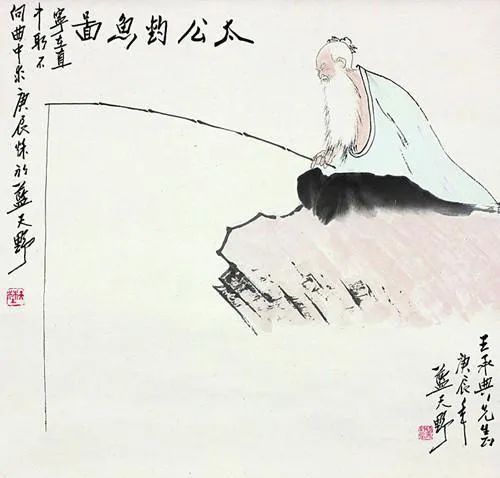 太公釣魚啚
寧在直
中取不
向曲中求庚辰秋初藍天野
王承典先生正
庚辰年
藍天野